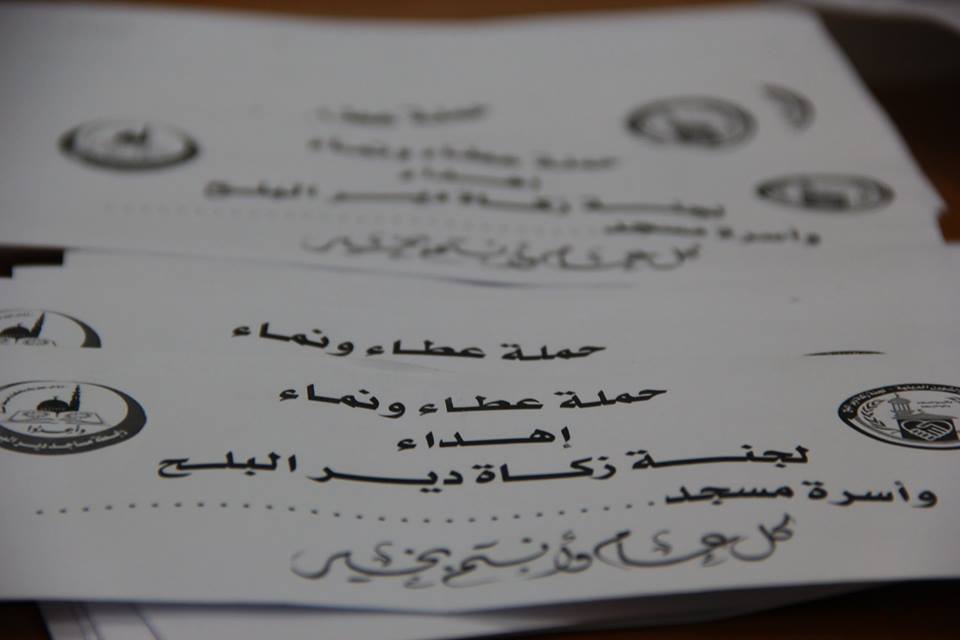 حملة عطاء ونماء
إهداء
لجنة زكاة دير البلح
وأسرة مسجد
كل عام وأنتم بخير
حملة عطاء ونماء
حملة عطاء ونماء
إهداء
لجنة زكاة دير البلح
وأسرة مسجد ..........................
كل عام وأنتم بخير
وأعدوا